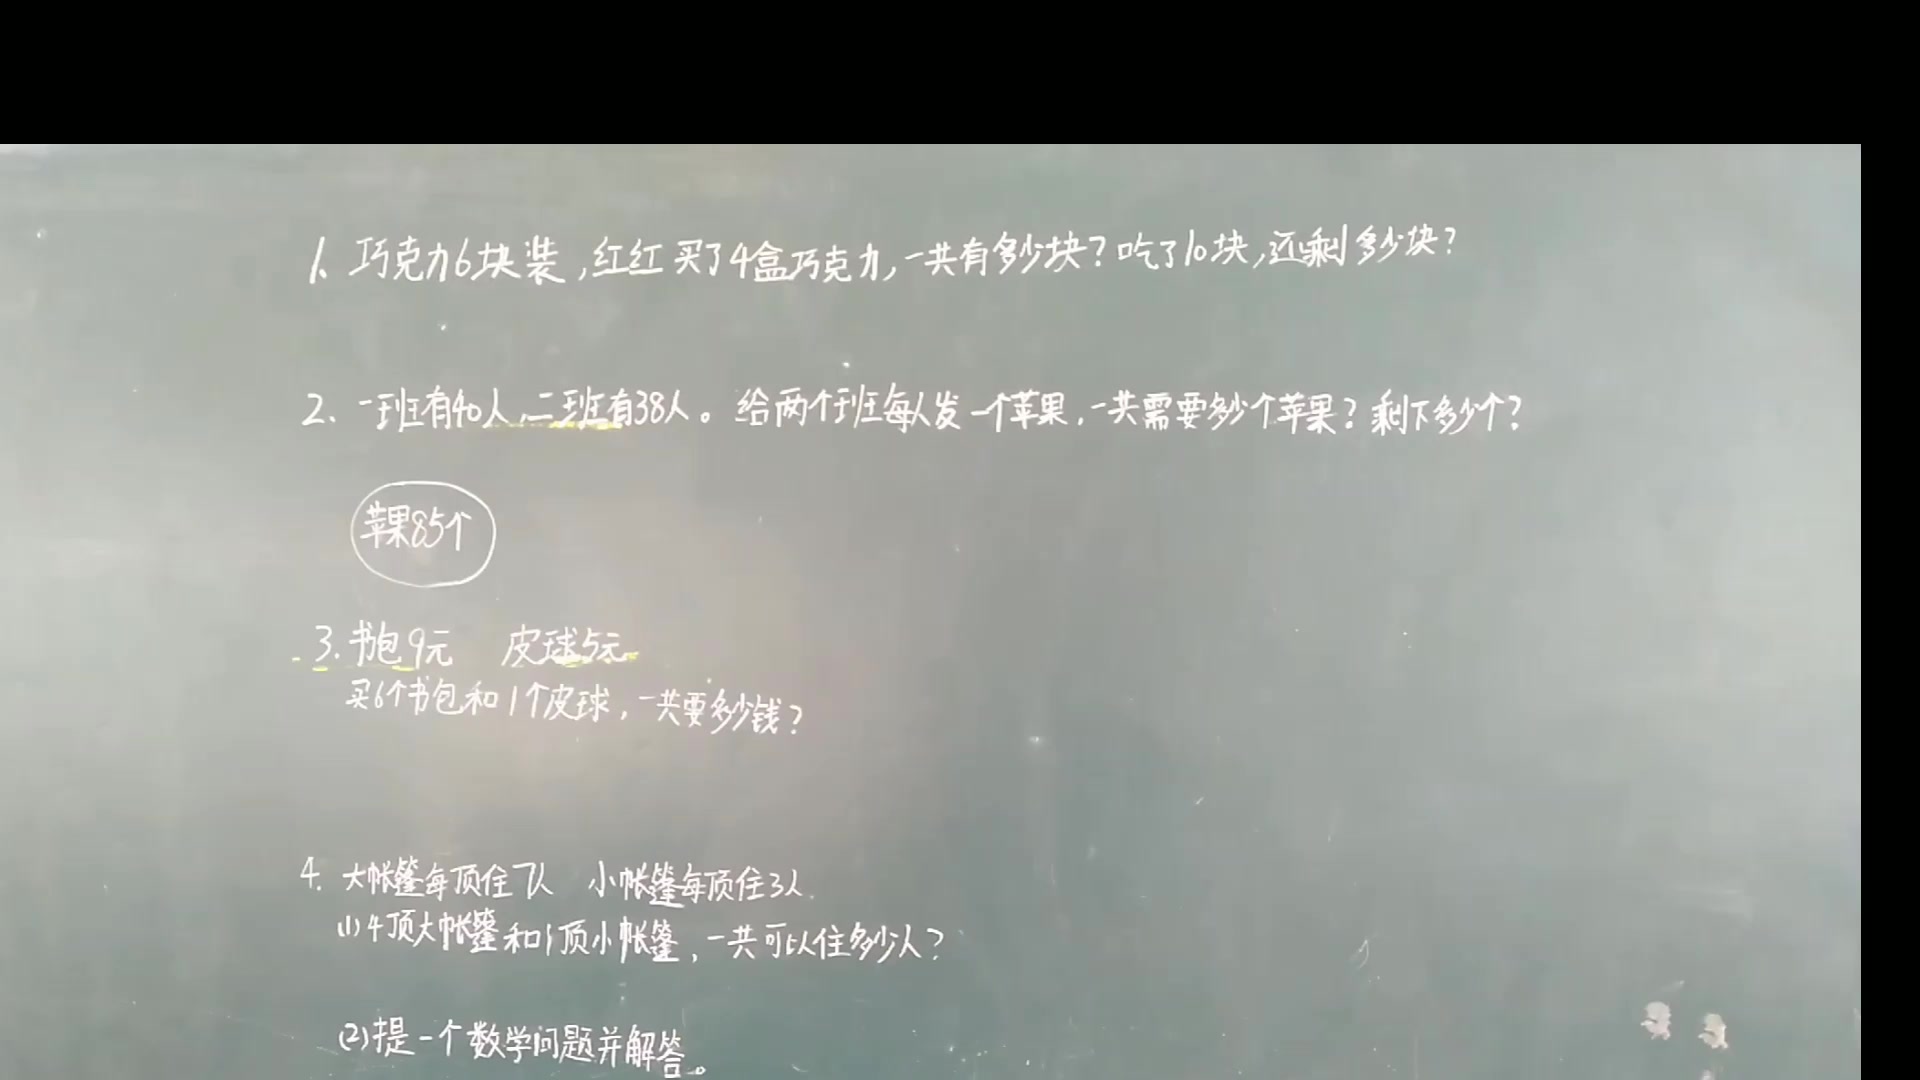 1、巧克力6块装,红红买了4盒巧克力,一共有多少块?吃了10块,还剩多少块?
2、一班有40人,二班有38人。给两个班每人发一个苹果,一共需要多少个苹果?剩下多少个?
苹果85个
3.书包9元 皮球5元
买6个书包和1个皮球,一共要多少钱?
4.大帐篷每顶住7人 小帐篷每顶住3人.
(1)4顶大帐篷和1顶小帐篷,一共可以住多少人?
(2)提一个数学问题并解答。